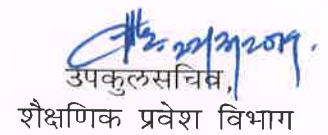 उपकुलसचिव,
शैक्षणिक प्रवेश विभाग